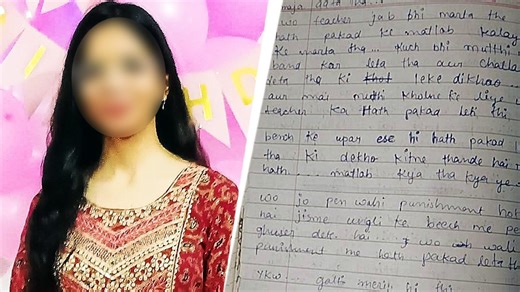 maja data tha..
wo teacher jab bhi marta the
hath pakad.. ke matlab kalay
ke marta tha... kuch bhi mutthi
band kar leta tha aur challa
deta tha ki leke dikhao
aur mai mudh kholne ke liye u
teacher ka Hath pakad leti thi
bench ke upar ese hi hath pakad l
tha ki dekho kitne thande hai
hath... matlab kya tha kya ye
wo jo pen wali punishment hot
hai jisme ungli ke beech me pe
ghused dete hai... wo wali
punishment me hath pakad leta th
Ykw galti meri hi thi